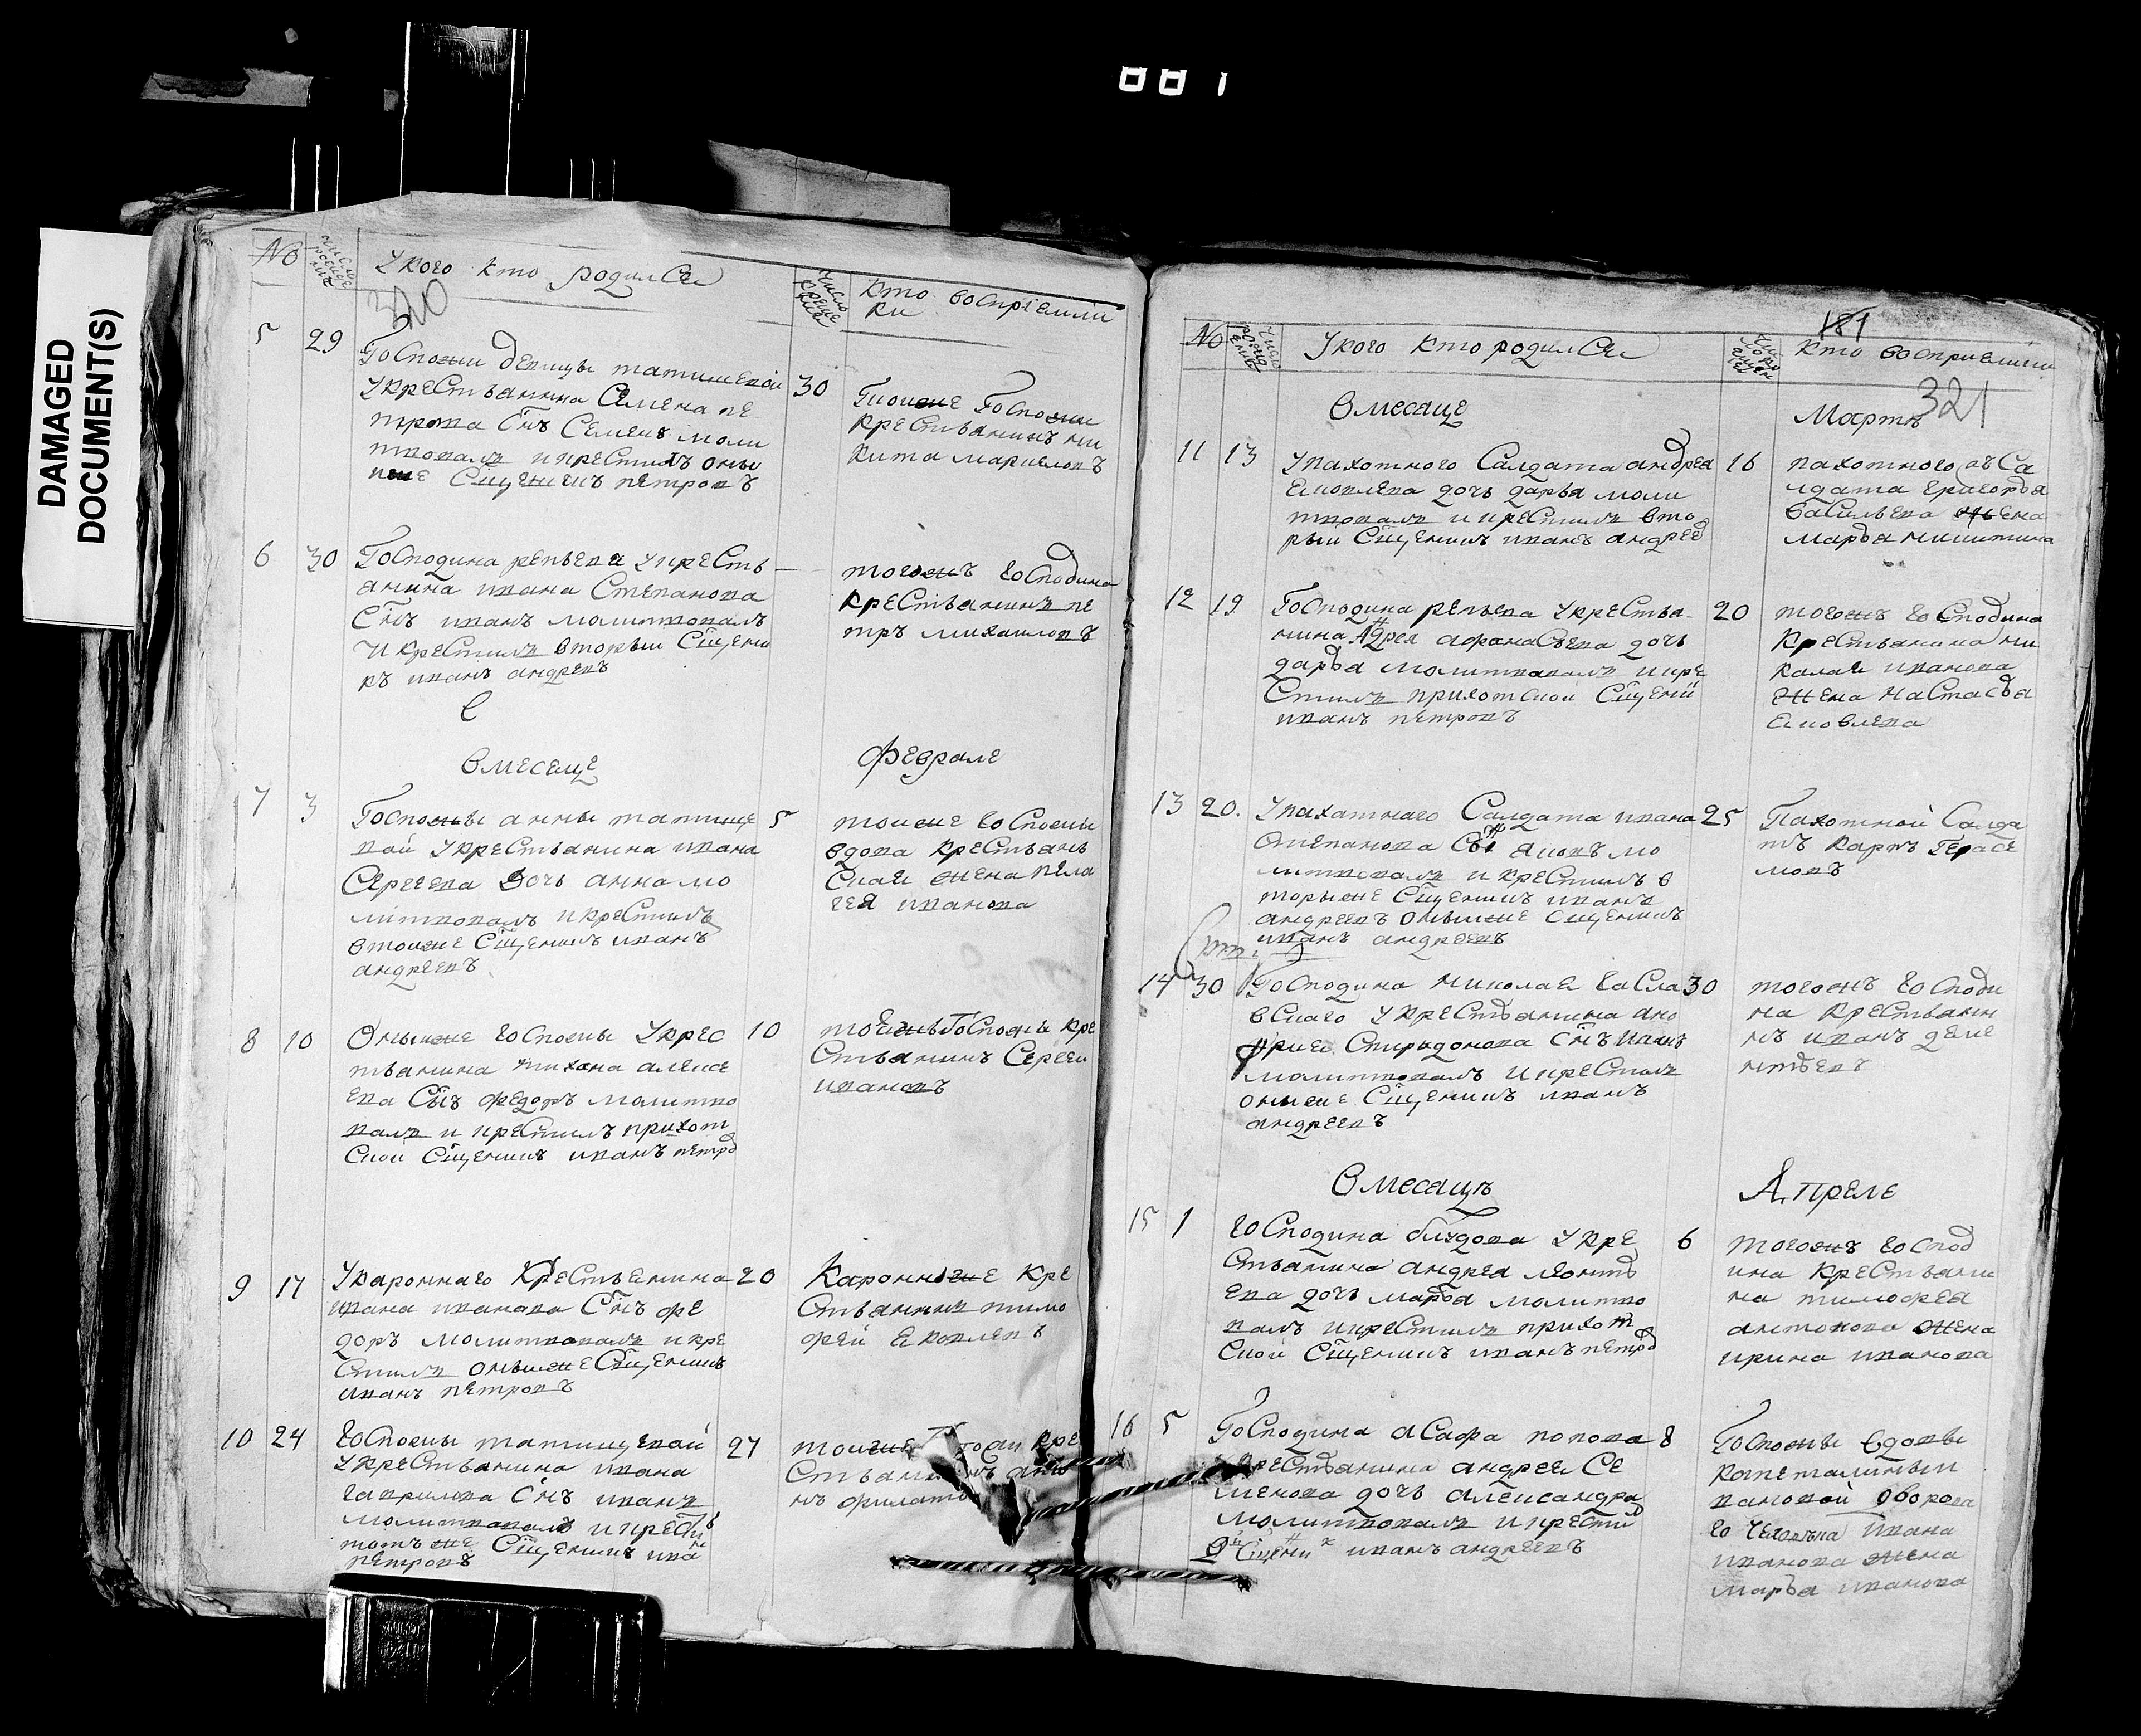 001
DAMAGED
DOCUMENT(S)
№
Число рожде ния
У кого кто родился
Число креще ния
Кто воспрiемни
ки
320
5 29
Госпожи девицы татищевой
У крестьянина Семена пе
трова Снъ Семенъ моли
твовалъ и крестилъ оны
и же Сщенникъ петровъ
30
Тоиже Госпожи
крестьянинъ ни
кита
6 30
Господина репьева у кресть
янина ивана Степанова
Снъ иванъ молитвовалъ
и крестилъ вторыи Сщени
къ иванъ андревъ
тогожъ господина
крестьянинъ пе
тръ михаиловъ
В месеце
феврале
7 3
Госпожы анны татище
вой У крестьянина ивана
Сергеева дочь анна мо
литвовалъ и крестилъ
втоиже Сщенникъ иванъ
андреевъ
5
тоиже госпожы
вдова крестьянъ
ская жена пела
гея иванова
8 10
Оныиже госпожы У крес
тьянина тихона алексе
ева Снъ федоръ молитво
валъ и крестилъ прихот
скои Сщенникъ иванъ петро
10
тоежъ Госпожы кре
стьянинъ Сергеи
ивановъ
9 17
У кароннаго крестьенина
ивана иванова Снъ фе
доръ молитвовалъ и кре
стилъ оныиже Сщенникъ
иванъ петровъ
20
Каронныже кре
стьянинъ тимо
фей Яковлевъ
10 24
Госпожы татищевай
У крестьянина ивана
гаврилова Снъ иванъ
молитвовалъ и крести
тотъ же Сщенникъ ива
петровъ
27
тоиже кре
стьянинъ
нъ филато
181
321
№
Число рожде ния
У кого кто родился
Кто восприемни
В месяце
Марте
11 13
У пахотного Салдата андрея
Яковлева дочь дарья моли
твовалъ и крестилъ вто
рыи Сщенникъ иванъ андрее
16
пахотного Са
лдата григорья
васильева жена
марья никитина
12 19
Господина репьева У крестья
нина Андрея афанасьева дочь
дарья молитвовалъ и кре
стилъ прихотскои Сщеннй
иванъ петровъ
20
тогожъ господина
крестьянина ни
колае иванова
жена настасья
Яковлева
13 20.
У пахатнаго Салдата ивана
Степанова Снъ яковъ мо
литвовалъ и крестилъ в
торыже Сщенникъ иванъ
андреевъ оныиже Сщенникъ
иванъ андреевъ
25
Пахотной Салда
тъ карпъ Герасе
мовъ
14 30
Господина николая Засла
вскаго У крестьянина ано
фриеа Спиридонова Снъ иванъ
молитвовалъ и крестилъ
оныиже Сщенникъ иванъ
андреевъ
30
тогожъ господи
на крестьяни
нъ иванъ деме
нтьевъ
В месяцъ
Апреле
15 1
Господина блудова У кре
стьянина андрея леонть
ева дочь марья молитво
валъ и крестилъ прихот
скои Сщенникъ иванъ петро
6
тогожъ господ
ина крестьяни
на тимофея
антонова жена
ирина иванова
16 5
Господина асафа попова
крестьянина андрея Се
менова дочь александра
молитвовалъ и крести
й Сщени к иванъ андреевъ
8
Госпожы вдовы
вановой дворова
го человека ивана
иванова жена
марья иванова